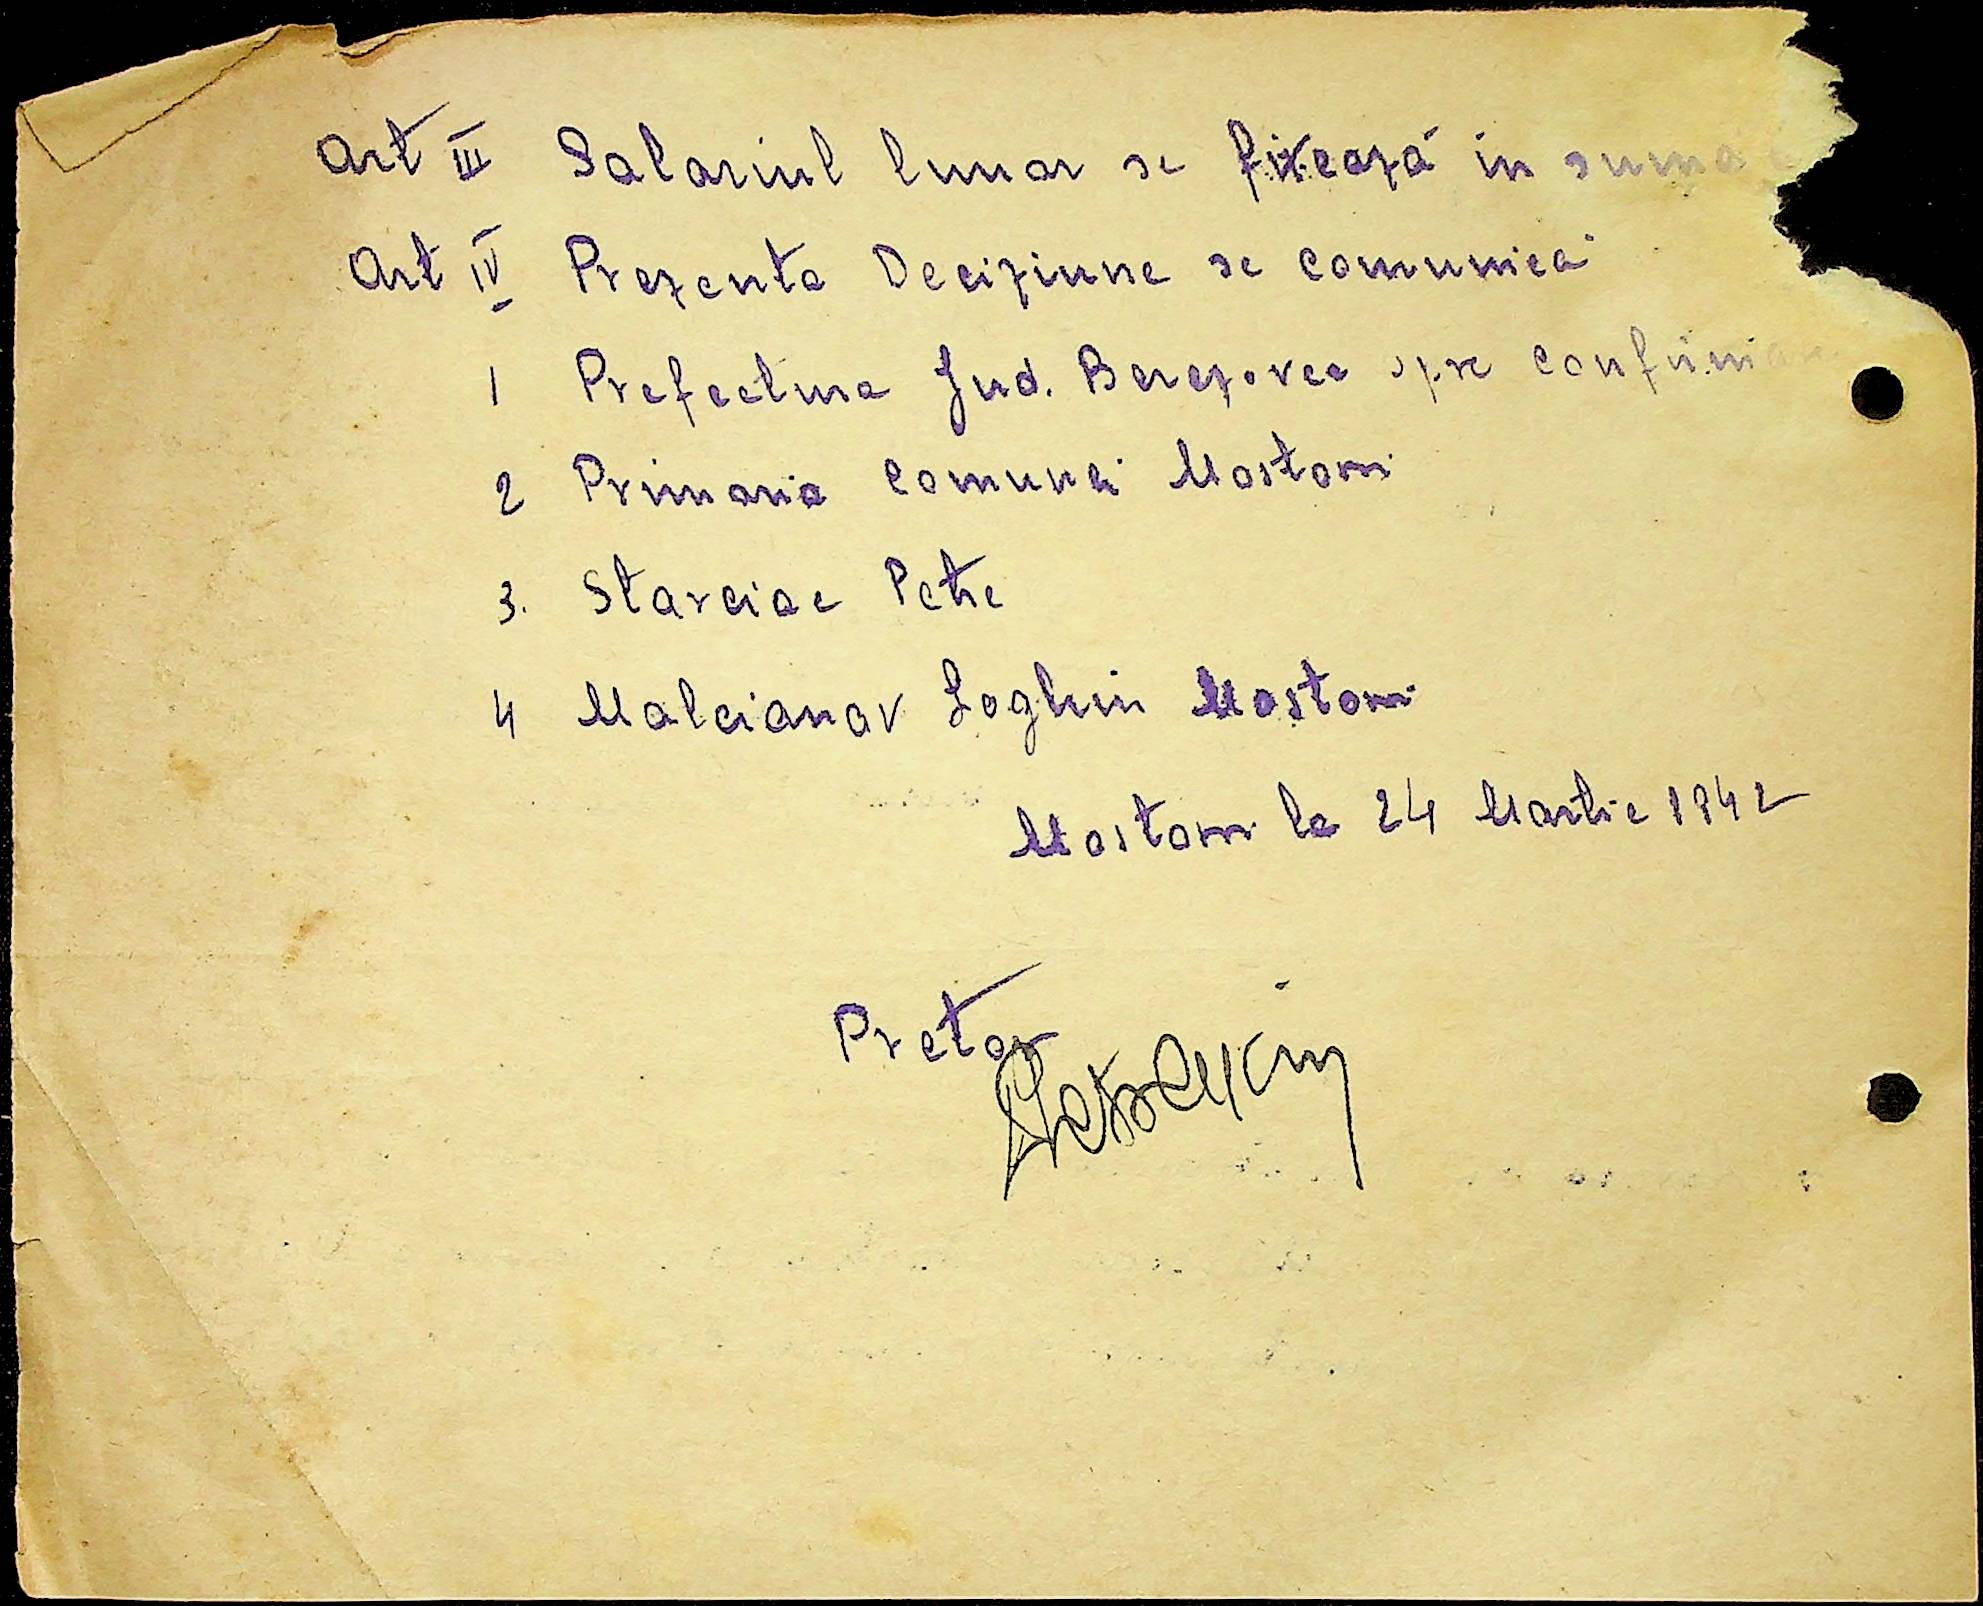 Art III Salariul lunar se fixează in suma
Art IV Prezenta Deciziune se comunică
1 Prefectura Jud. Berezovca spre confirmare
2 Primaria comunei Mostovoi
3. Starciac Petre
4 Malcianov Loghin Mostovoi
Mostovoi la 24 Martie 1942
Pretor